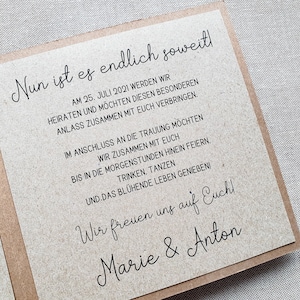 Nun ist es endlich soweit!
AM 25. JULI 2021 WERDEN WIR
HEIRATEN UND MÖCHTEN DIESEN BESONDEREN
ANLASS ZUSAMMEN MIT EUCH VERBRINGEN.
IM ANSCHLUSS AN DIE TRAUUNG MÖCHTEN
WIR ZUSAMMEN MIT EUCH
BIS IN DIE MORGENSTUNDEN HINEIN FEIERN,
TRINKEN, TANZEN
UND DAS BLÜHENDE LEBEN GENIEßEN!
Wir freuen uns auf Euch!
Marie & Anton